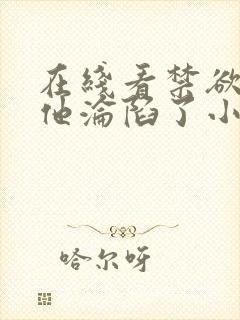 在綫看禁欲
他淪陷了小
哈尔呀